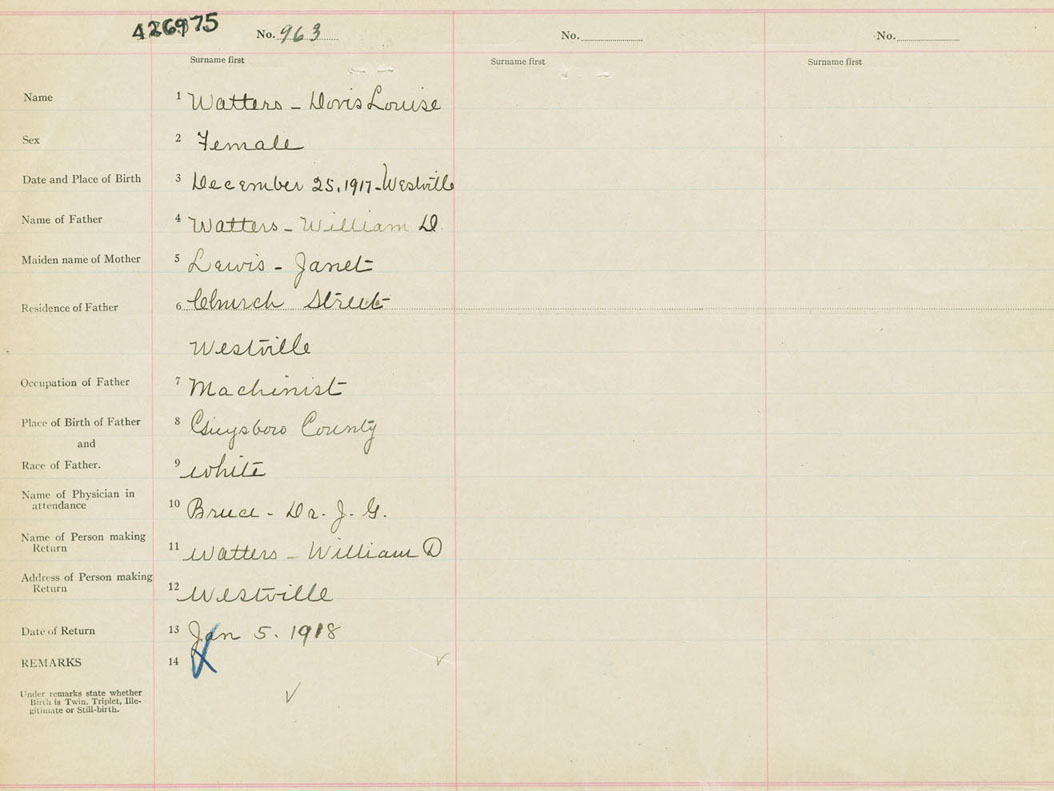 426975
No. 963
No.
No.
Surname first
Surname first
Surname first
Name 1 Watters - Doris Louise
Sex 2 Female
Date and Place of Birth 3 December 25, 1917 - Westville
Name of Father 4 Watters - William D
Maiden name of Mother 5 Lewis - Janet
Residence of Father 6 Church Street
Westville
Occupation of Father 7 Machinist
Place of Birth of Father 8 Guysboro County
and
Race of Father. 9 White
Name of Physician in
attendance 10 Bruce - Dr. J. G.
Name of Person making
Return 11 Watters - William D
Address of Person making
Return 12 Westville
Date of Return 13 Jan 5. 1918
REMARKS 14
Under remarks state whether
Birth is Twin, Triplet, Ille-
gitimate or Still-birth.